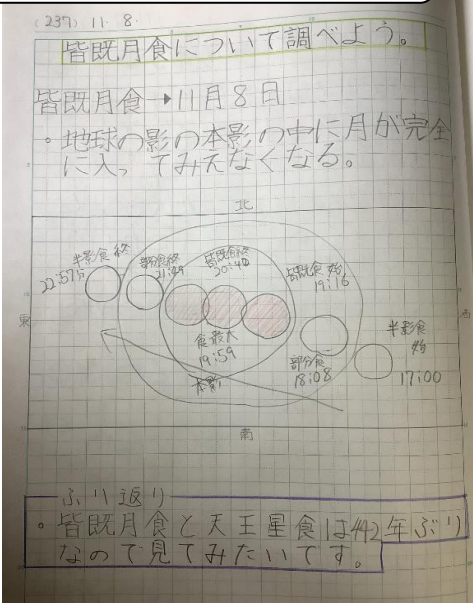 (237) 11.8.
皆既月食について調べよう。
皆既月食→11月8日
・地球の影の本影の中に月が完全
に入ってみえなくなる。
北
半影食 終
22:57分
部分食終
21:49
皆既食終
20:42
皆既食 始
19:16
東
西
食最大
19:59
部分食
18:08
半影食
始
17:00
本影
南
ふり返り
・皆既月食と天王星食は442年ぶり
なので見てみたいてす。